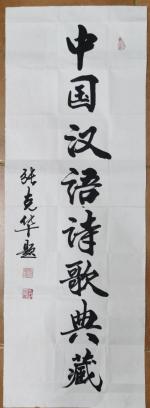 中国汉语诗歌典藏
张克华题